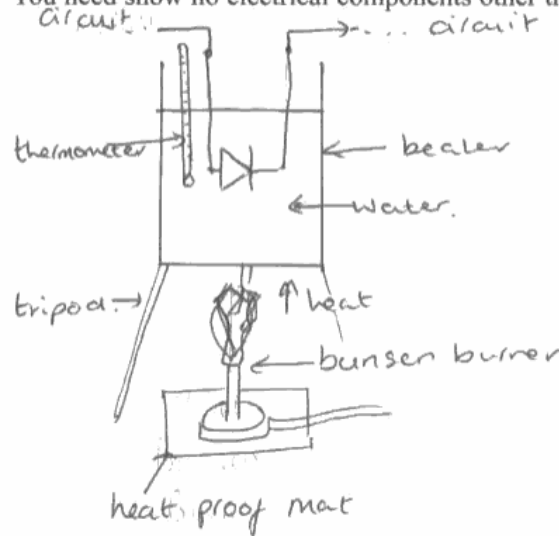 You need show no electrical components other t
circuit.. .... circuit
thermometer
beaker
water.
tripod.
heat
bunsen burner
heat proof mat